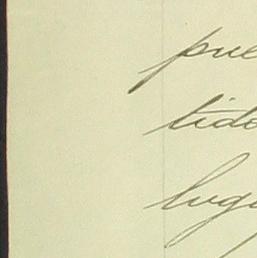 pue
tido
luga